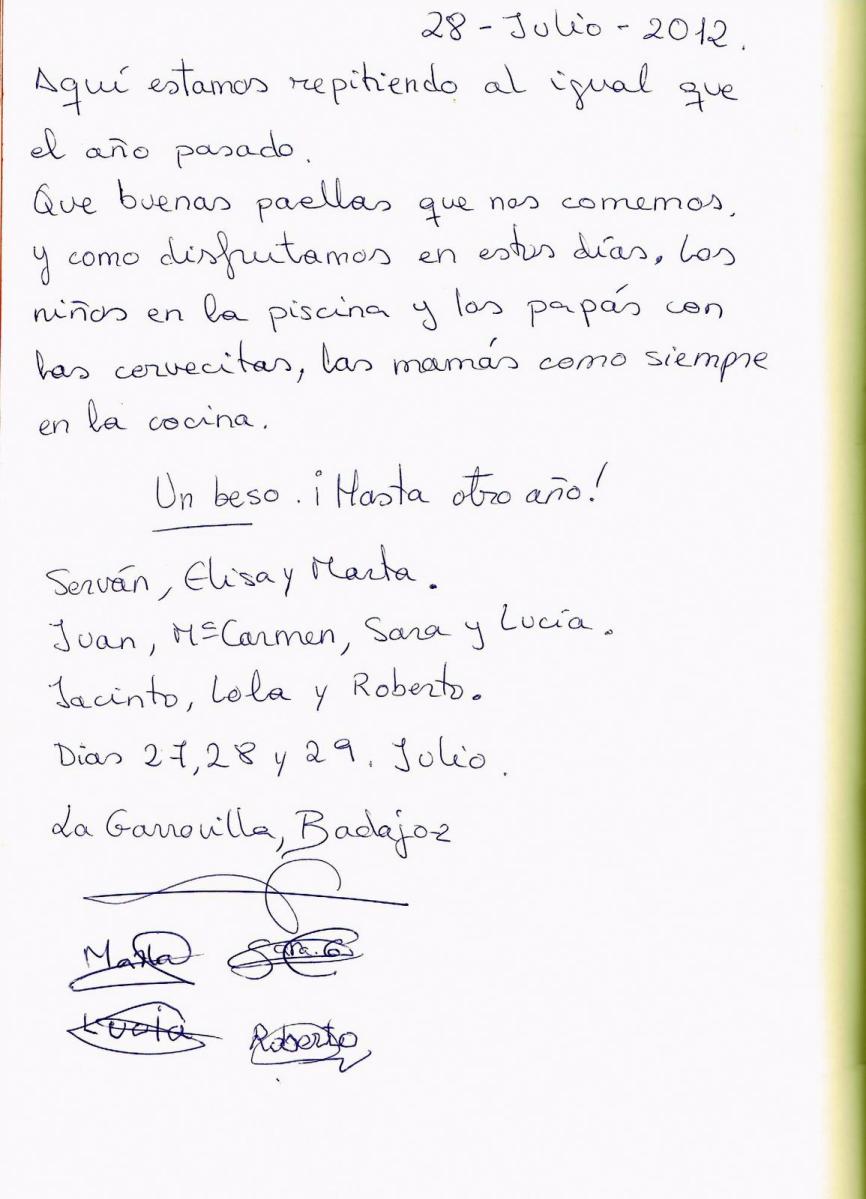 28 - Julio - 2012.
Aquí estamos repitiendo al igual que
el año pasado.
Que buenas paellas que nos comemos,
y como disfrutamos en estos días, los
niños en la piscina y los papás con
las cervecitas, las mamás como siempre
en la cocina.
Un beso. ¡Hasta otro año!
Serván, Elisa y Marta.
Juan, Mª Carmen, Sara y Lucía.
Jacinto, Lola y Roberto.
Dias 27, 28 y 29. Julio.
La Garrovilla, Badajoz
Marta Sara. G
Lucía Roberto